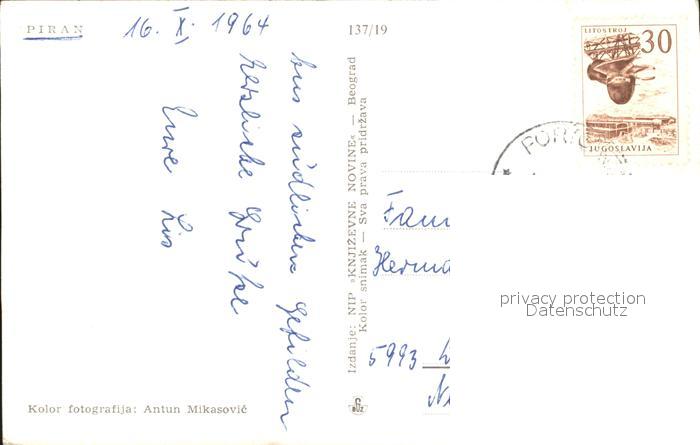 PIRAN
16. X. 1964
Aus südlichen Gefilden
Herzliche Grüße
Eure Lis
Kolor fotografija: Antun Mikasović
137/19
Izdanje: NIP »KNJIŽEVNE NOVINE« — Beograd
Kolor snimak — Sva prava pridržava
LITOSTROJ
30
JUGOSLAVIJA
Fam
Herma
5993
privacy protection
Datenschutz